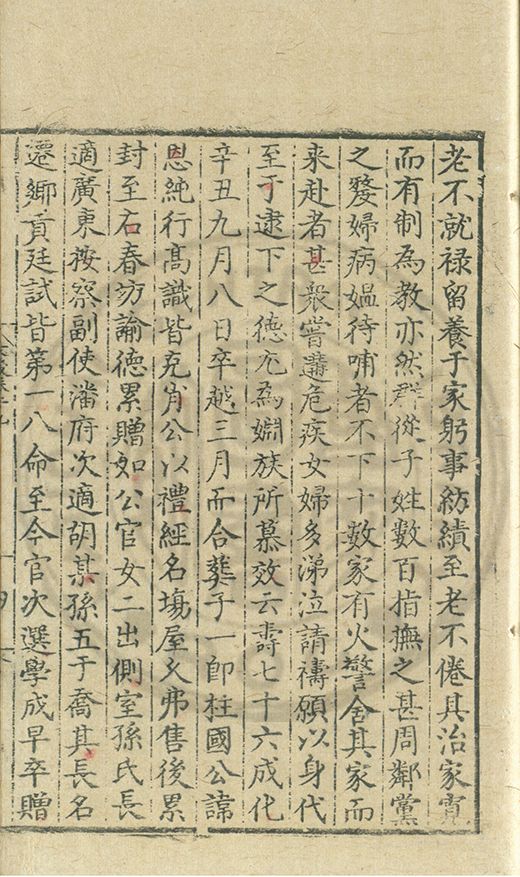 老不就禄留養于家躬事紡績至老不倦其治家寛
而有制為教亦然群從子姓數百指撫之甚周鄰黨
之嫠婦病媪待哺者不下十數家有火警舍其家而
来赴者甚衆嘗遘危疾女婦多涕泣請禱願以身代
至于逮下之徳尤為婣族所慕效云壽七十六成化
辛丑九月八日卒越三月而合葬子一即柱國公諱
恩純行髙識皆克肖公以禮經名塲屋乆弗售後累
封至右春坊諭徳累贈如公官女二出側室孫氏長
適廣東按察副使潘府次適胡某孫五于喬其長名
遷鄉貢廷試皆第一八命至今官次選學成早卒贈